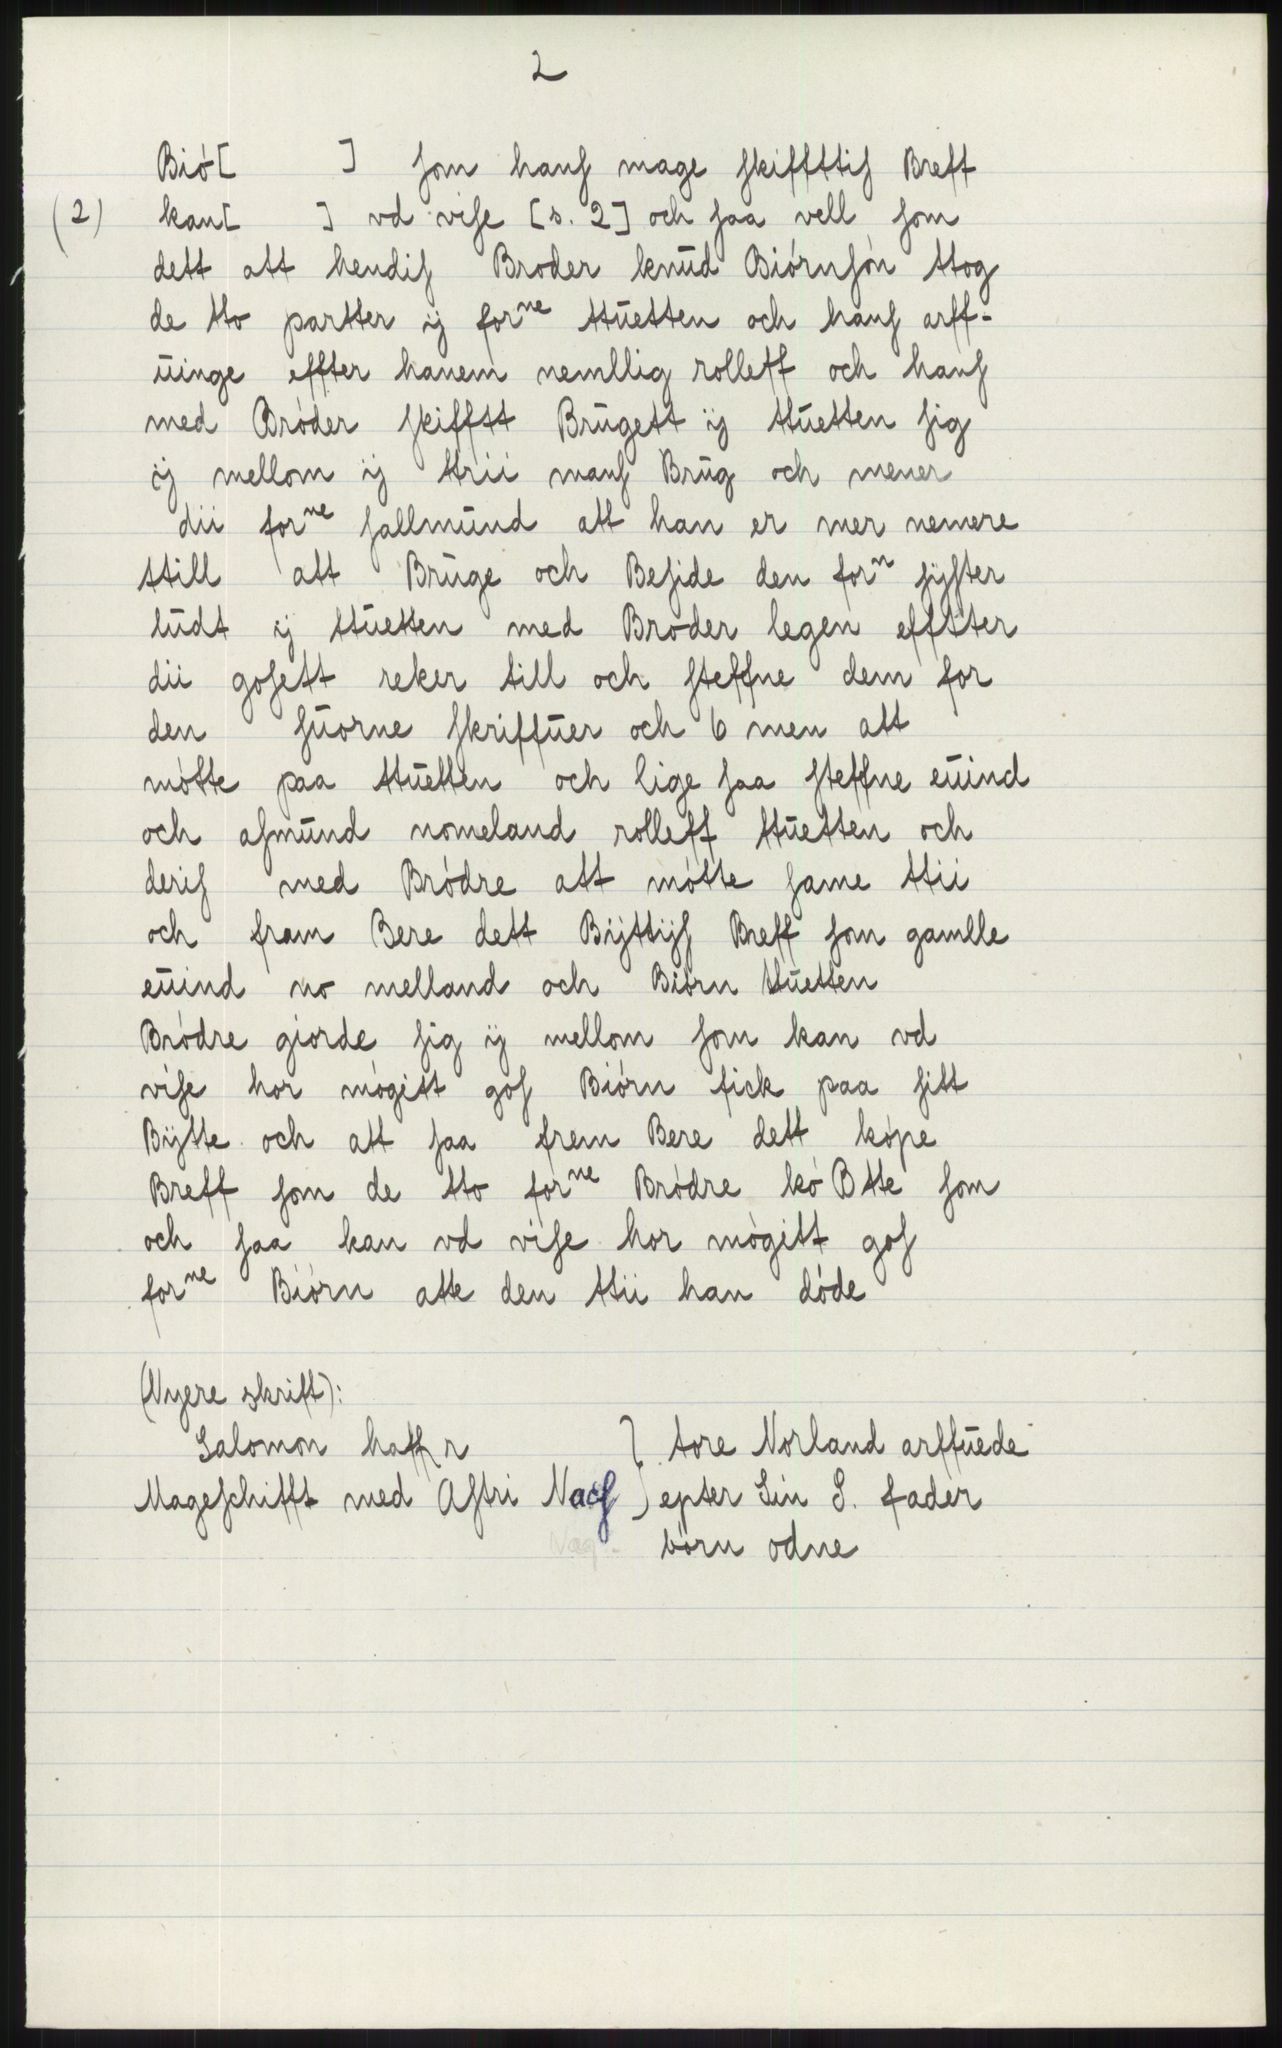 2
Bió[ ] som hans mage skiffttis Breff
(2) kan[ ] vd vise [s. 2] och saa vell som
dett att hendis Broder knūd Biórnsón ttog
de tto partter ij forne ttūetten och hans arff-
ūinge effter hanem nemllig rolleff och hans
med Bróder skifftt Brūgett ij ttūetten sig
ij mellom ij ttrii mans Brūg och mener
dii forne sallmūnd att han er mer nemere
ttill att Brūge och Beside den forn sijster
lūdt ij ttūetten med Broder legen efftter
dii gosett reker till och steffne dem for
den sūorne skriffūer och 6 men att
mótte paa ttūetten och lige saa steffne eūind
och asmūnd nomeland rolleff ttūetten och
deris med Bródre att mótte same ttii
och fram Bere dett Bijttijs Breff som gamlle
eūind no melland och Biórn ttūetten
Bródre giorde sig ij mellom som kan vd
vise hor mógitt gos Biórn fick paa sitt
Bijtte och att saa frem Bere dett kópe
Breff som de tto forne Bródre kó Btte som
och saa kan vd vise hor mógitt gos
forne Biórn atte den ttii han dóde
(Nyere skrift):
Salomon haffr } tore Nórland arffūede
Mageschifft med Astri Nacs } epter Sin S. fader
bórn odne